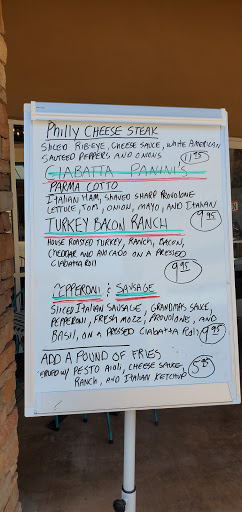 Philly CHEESE STEAK
SLICED RIBEYE, CHEESE SAUCE, WHITE AMERICAN
SAUTEED PEPPERS AND ONIONS 11.95
CIABATTA PANINI'S
PARMA COTTO
ITALIAN HAM, SHAVED SHARP PROVOLONE
LETTUCE, TOM, ONION, MAYO, AND ITALIAN
9.95
TURKEY BACON RANCH
HOUSE ROASTED TURKEY, RANCH, BACON,
CHEDDAR AND AVOCADO ON A PRESSED
CIABATTA ROLL
9.95
PEPPERONI & SAUSAGE
SLICED ITALIAN SAUSAGE, GRANDMAS SAUCE,
PEPPERONI, FRESH MOZZ, PROVOLONE, AND
BASIL, ON A PRESSED CIABATTA ROLL 9.95
ADD A POUND OF FRIES
SERVED W/ PESTO AIOLI, CHEESE SAUCE,
RANCH, AND ITALIAN KETCHUP 5.95